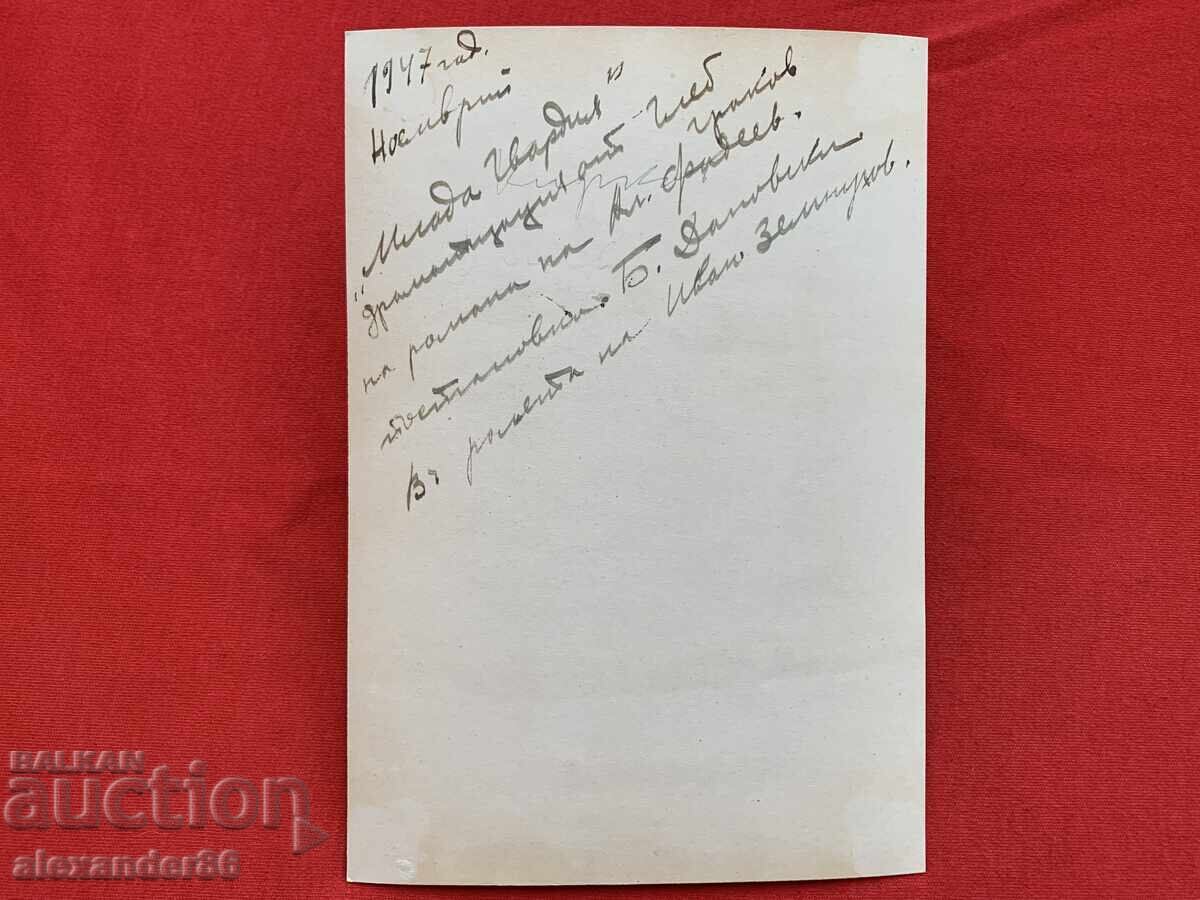 1947 год.
Ноемврий
„Млада Гвардия"
драматизация от Глеб
Граков
на романа на Ал. Фадеев.
постановка. Б. Дановски
Въ ролята на Иван Земнухов.
BALKAN
auction
alexander86